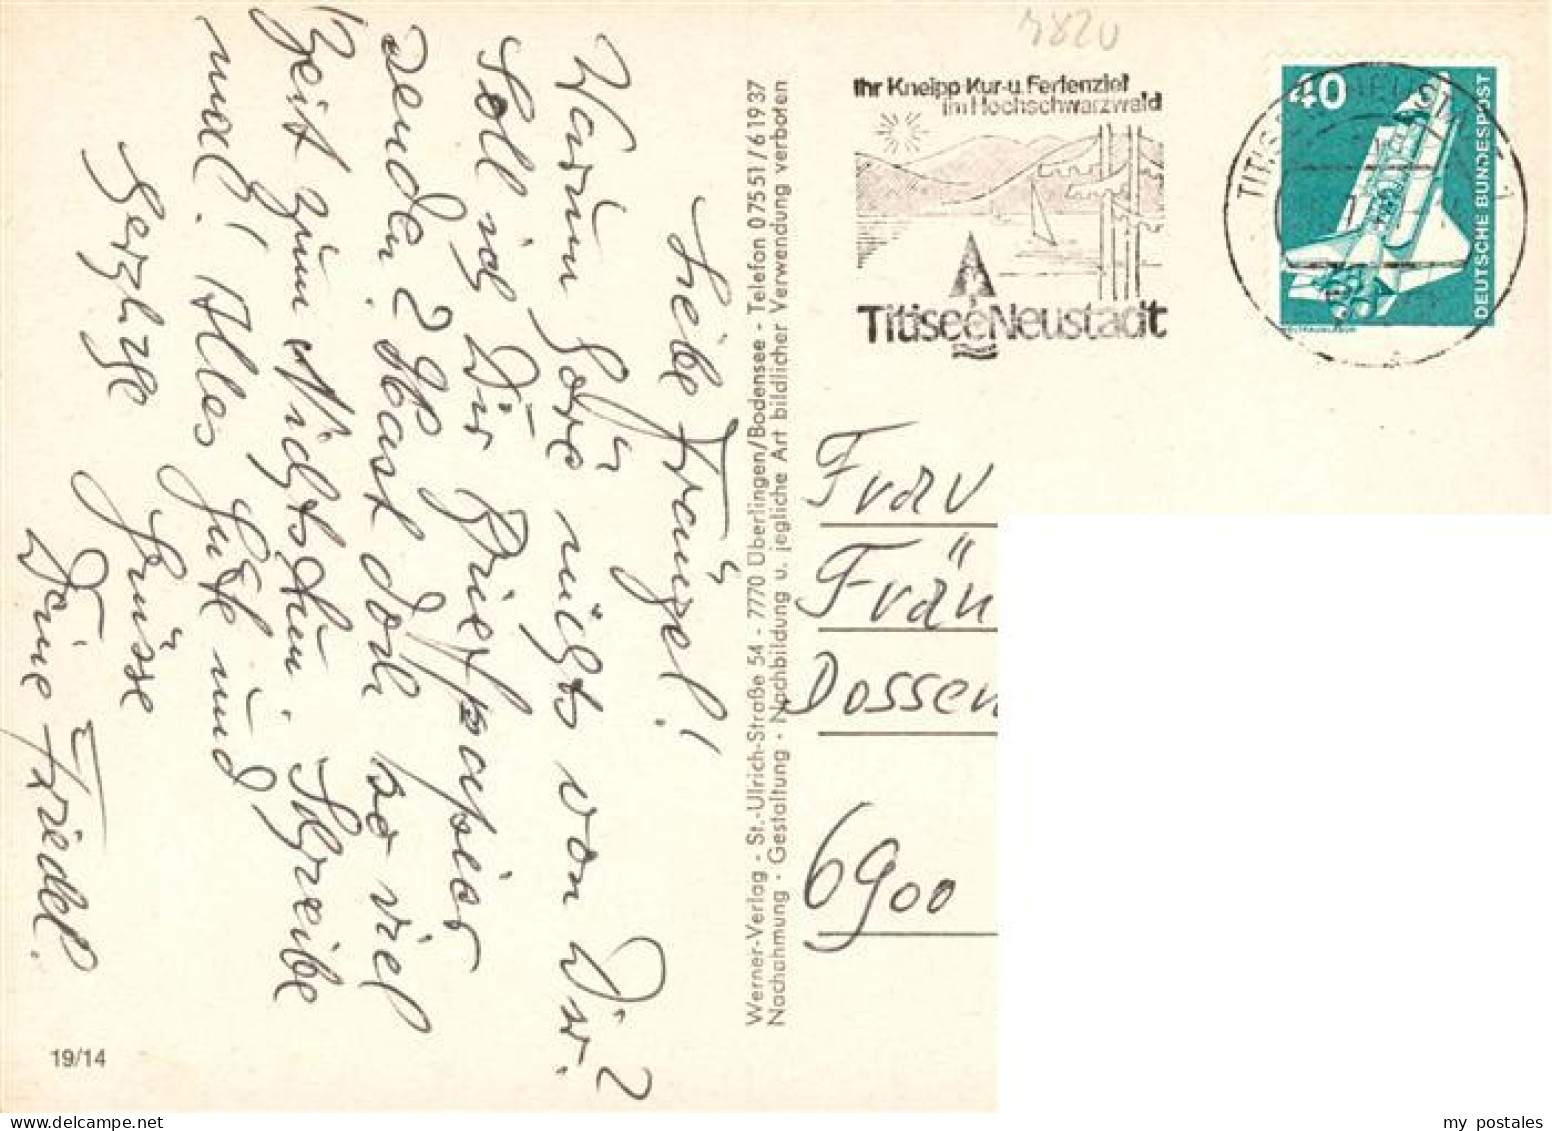 7820
Ihr Kneipp Kur-u. Ferienziel
im Hochschwarzwald
Titisee Neustadt
40
DEUTSCHE BUNDESPOST
WELTRAUMLABOR
Liebe Fränzel!
Warum höre nichts von Dir?
Soll ich Dir Briefpapier
senden? Hast doch so viel
Zeit zum Nichtstun. Schreibe
mal! Alles Gute und
herzlige Grüsse
Deine Friedel.
Werner-Verlag - St.-Ulrich-Straße 54 - 7770 Überlingen/Bodensee - Telefon 07551/61937
Nachahmung - Gestaltung - Nachbildung u. jegliche Art bildlicher Verwendung verboten
Frau
Frän
Dossen
6900
19/14
my postales